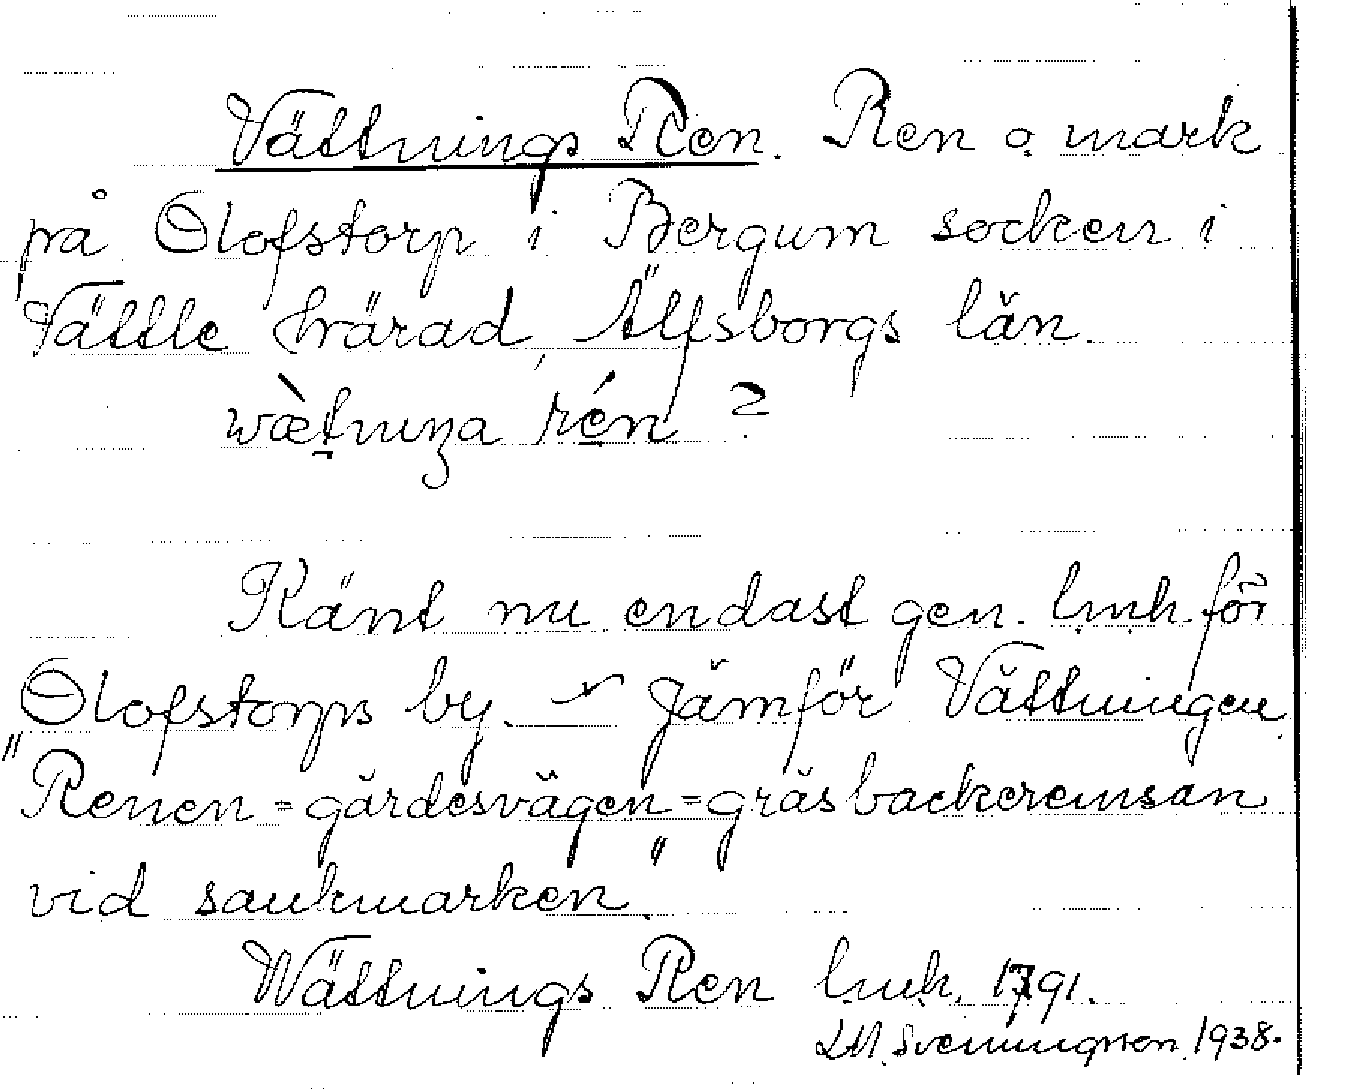 Vättnings Ren. Ren o. mark
på Olofstorp i Bergum socken i
Vättle härad, Älfsborgs län.
wæ̀tnɩŋa rén ?
Känt nu endast gen. l.m.h. för
Olofstorps by. – Jämför Vättningen.
"Renen = gärdesvägen = gräsbackeremsan
vid sankmarken."
Wättnings Ren l.m.h. 1791.
LM. Svenungsson. 1938.